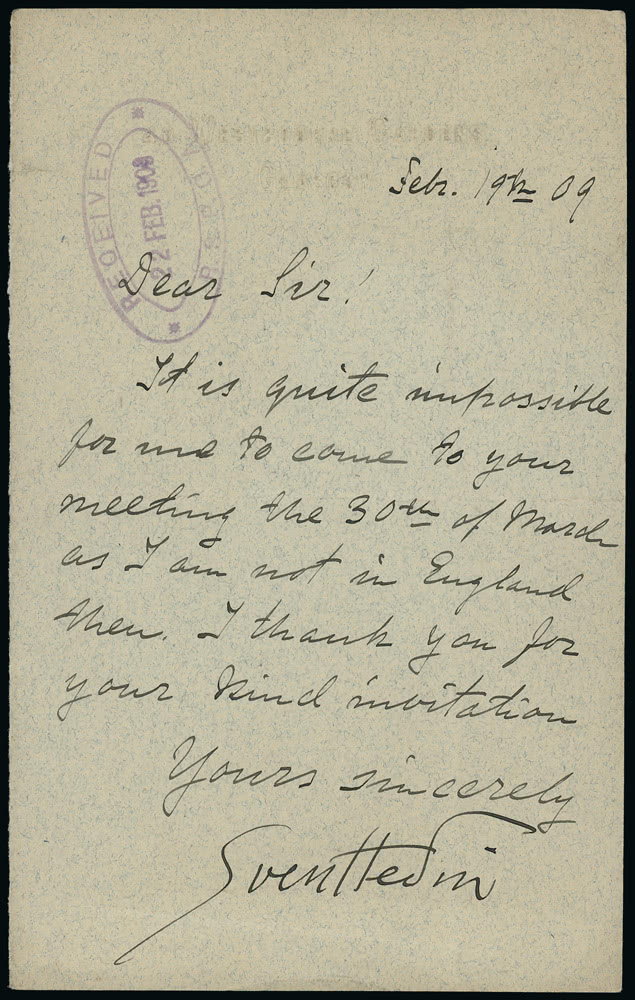 RECEIVED
22 FEB. 1909
Febr. 19th 09
Dear Sir!
It is quite impossible
for me to come to your
meeting the 30th of March
as I am not in England
then. I thank you for
your kind invitation
Yours sincerely
Sven Hedin